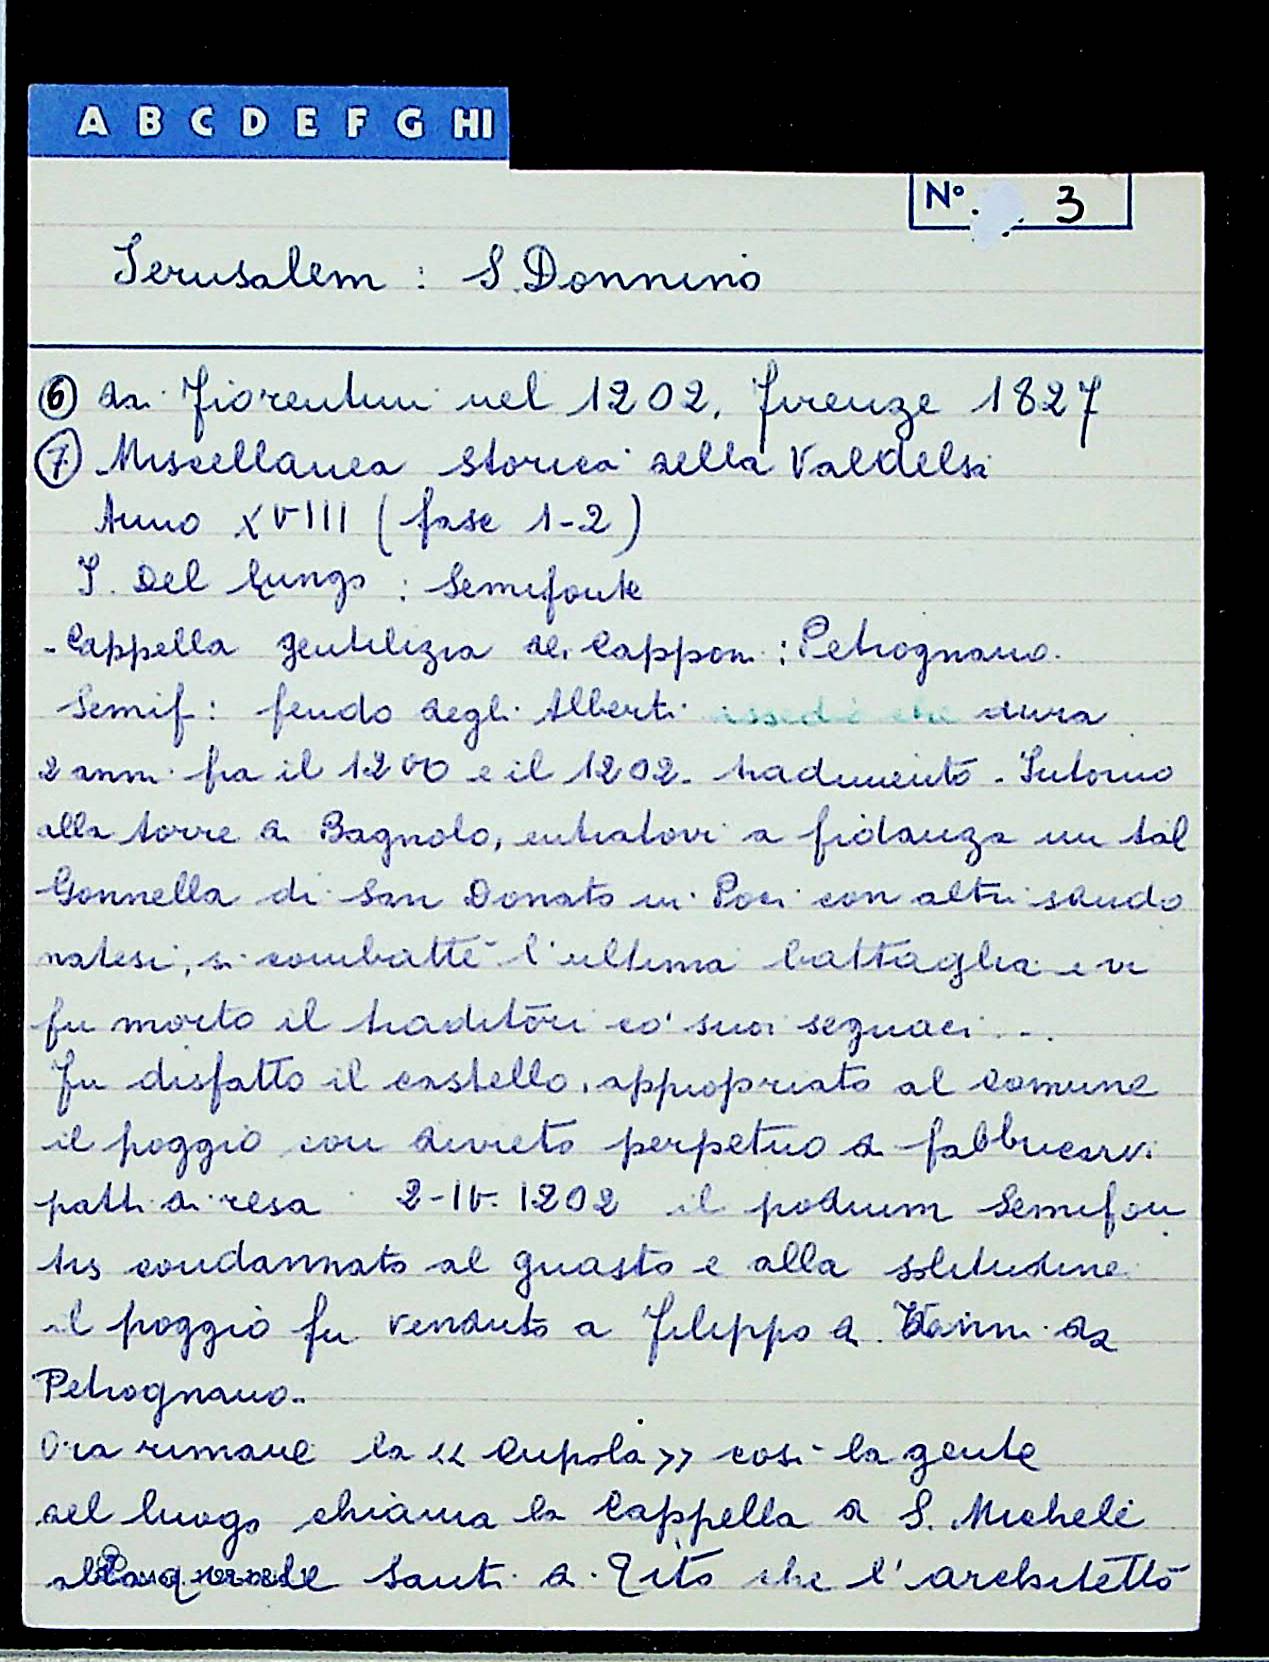 A B C D E F G HI
Nº. 3
Jerusalem : S. Donnino
⑥ dai Fiorentini nel 1202. Firenze 1827
⑦ Miscellanea storica della Valdelsa
Anno XVIII (fasc 1-2)
I. Del Lungo : Semifonte
- Cappella gentilizia dei Capponi : Petrognano.
Semif: feudo degli Alberti assedio che dura
2 anni fra il 1200 e il 1202. tradimento - Intorno
alla torre di Bagnolo, entratovi a fidanza un tal
Gonnella di San Donato in Poci con altri sando
natesi, si combatté l'ultima battaglia e vi
fu morto il traditori co' suoi seguaci ...
Fu disfatto il castello, appropriato al comune
il poggio con divieto perpetuo di fabbricarvi
patti di resa 2-IV. 1202 il podium Semifon
tis condannato al guasto e alla solitudine
il poggio fu venduto a Filippo di Vanni da
Petrognano..
Ora rimane la << Cupola >> così la gente
del luogo chiama la Cappella di S. Michele
Santi di Tito che l'architettò